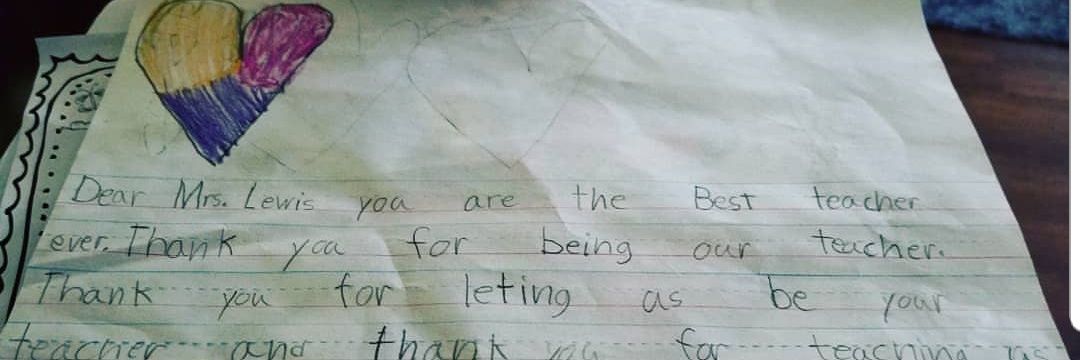 Dear Mrs. Lewis you are the Best teacher
ever. Thank you for being our teacher.
Thank you for leting as be your
teacher and thank you for teaching us